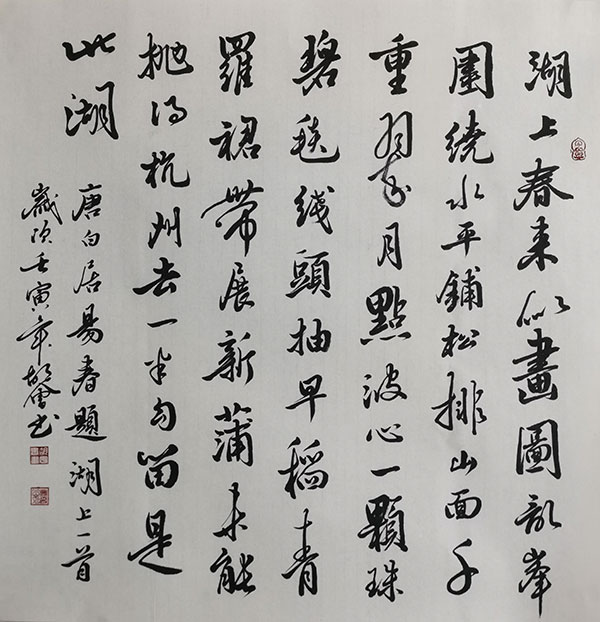 湖上春来似畫圖乱峯
圍绕水平鋪松排山面千
重翠月點波心一顆珠
碧毯线頭抽早稻青
羅裙帶展新蒲未能
抛得杭州去一半勾留是
此湖
唐白居易春題湖上一首
歲次壬寅年胡书